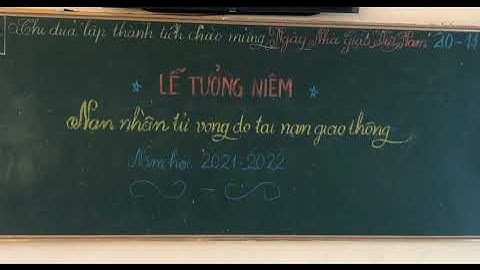 Thi đua lập thành tích chào mừng Ngày Nhà giáo Việt Nam 20-11
LỄ TƯỞNG NIỆM
Nạn nhân tử vong do tai nạn giao thông
Năm học 2021-2022